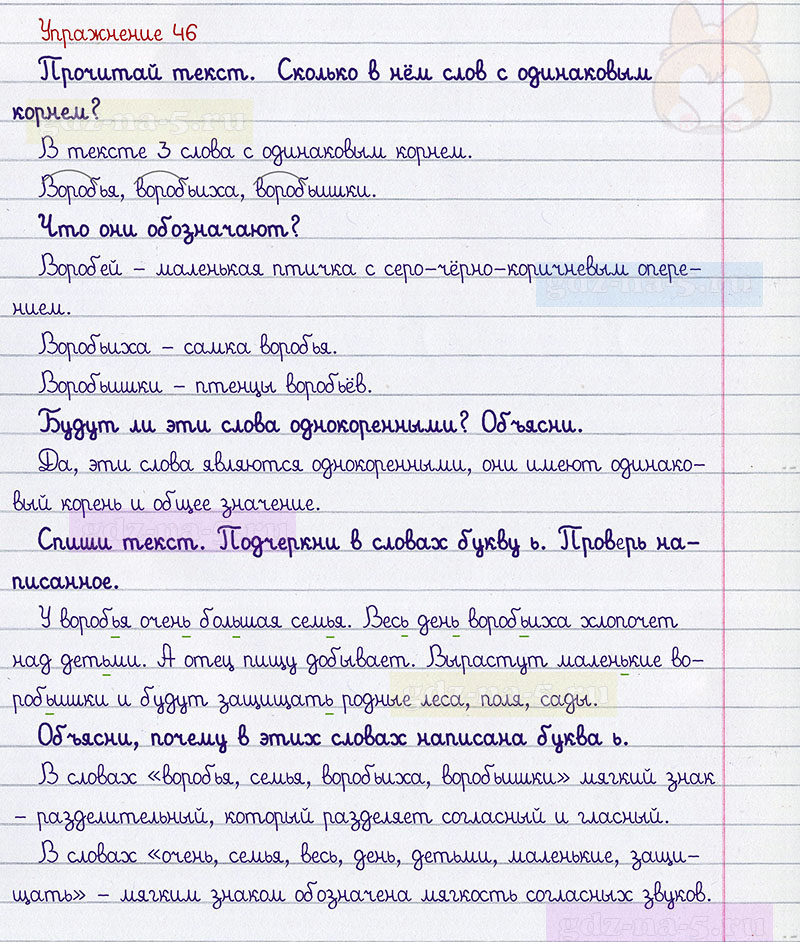 Упражнение 46
Прочитай текст. Сколько в нём слов с одинаковым
корнем?
gdz-na-5.ru
В тексте 3 слова с одинаковым корнем.
Воробья, воробьиха, воробьишки.
Что они обозначают?
Воробей – маленькая птичка с серо-чёрно-коричневым опере-
gdz-na-5.ru
нием.
Воробьиха – самка воробья.
Воробьишки – птенцы воробьёв.
Будут ли эти слова однокоренными? Объясни.
Да, эти слова являются однокоренными, они имеют одинако-
вый корень и общее значение.
gdz-na-5.ru
Спиши текст. Подчеркни в словах букву ь. Проверь на-
писанное.
У воробья очень большая семья. Весь день воробьиха хлопочет
над детьми. А отец пищу добывает. Вырастут маленькие во-
робьишки и будут защищать родные леса, поля, сады.
gdz-na-5.ru
Объясни, почему в этих словах написана буква ь.
В словах «воробья, семья, воробьиха, воробьишки» мягкий знак
– разделительный, который разделяет согласный и гласный.
В словах «очень, семья, весь, день, детьми, маленькие, защи-
щать» – мягким знаком обозначена мягкость согласных звуков.
gdz-na-5.ru